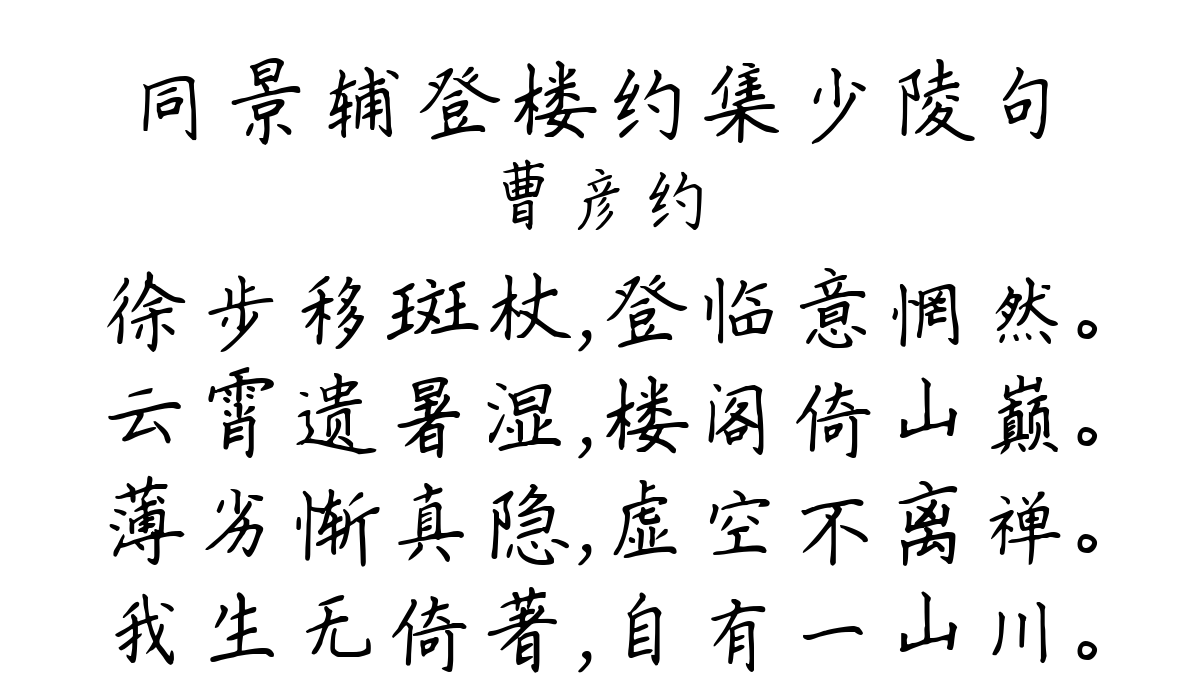 同景辅登楼约集少陵句
曹彦约
徐步移斑杖,登临意惘然。
云霄遗暑湿,楼阁倚山巅。
薄劣惭真隐,虚空不离禅。
我生无倚著,自有一山川。